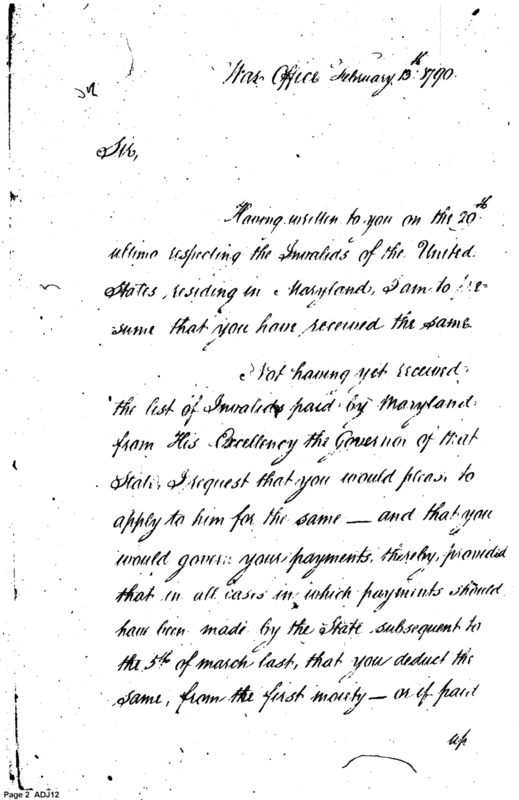 War Office February 13th 1790.
Sir,
Having written to you on the 20th
ultimo respecting the Invalids of the United
States, residing in Maryland, I am to pre-
sume that you have received the same
Not having yet received
the list of Invalids paid by Maryland
from His Excellency the Governor of that
State, I request that you would please to
apply to him for the same — and that you
would govern your payments, thereby, provided
that in all cases in which payments should
have been made by the State subsequent to
the 5th of march last, that you deduct the
same, from the first moiety — or if paid
up
Page 2 ADJ12